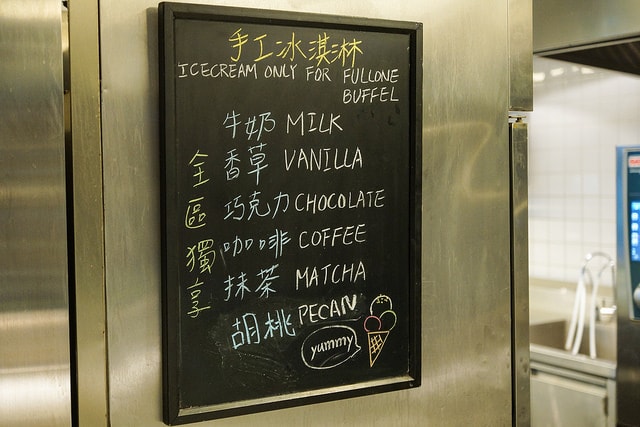 手工冰淇淋
ICECREAM ONLY FOR FULLONE
BUFFEL
全區獨享
牛奶 MILK
香草 VANILLA
巧克力 CHOCOLATE
咖啡 COFFEE
抹茶 MATCHA
胡桃 PECAN
yummy